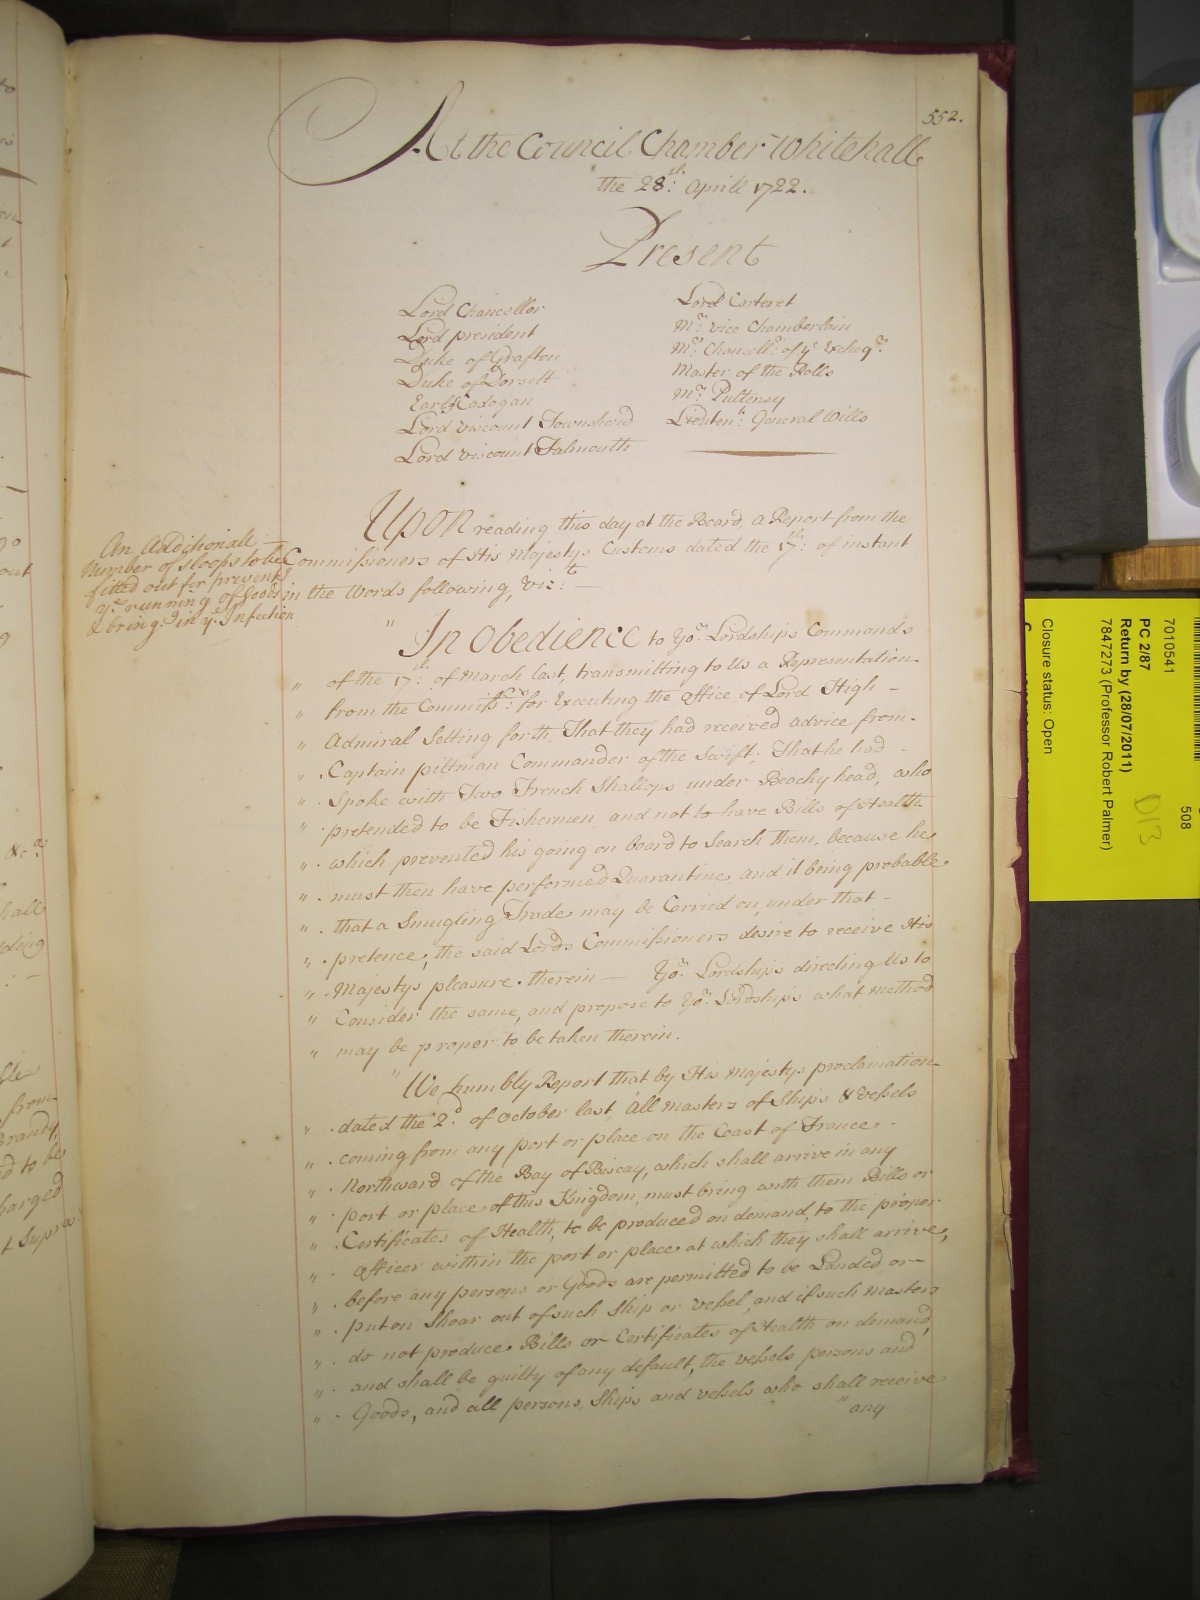 552.
At the Council Chamber Whitehall
the 28th: Aprill 1722.
Present
Lord Chancellor
Lord president
Duke of Grafton
Duke of Dorsett
Earl Cadogan
Lord viscount Townshend
Lord viscount Falmouth
Lord Carteret
Mr: Vice Chamberlain
Mr: Chancellr: of ye Excheqr:
Master of the Rolls
Mr: Pulteney
Lieutent: General Wills
An Additionall
Number of sloops to be
fitted out for preventg
ye running of Goods
& bring:g in ye Infection
Upon reading this day at the Board, a Report from the
Commissioners of His Majestys Customs dated the 17th: of instant
in the Words following, Vizt: —
" In Obedience to Yor: Lordships Commands
" of the 17th: of March last, transmitting to Us a Representation
" from the Commissrs: for Executing the Office of Lord High –
" Admiral Setting forth, That they had received advice from –
" Captain pittman Commander of the Swift; That he had –
" Spoke with Two French Shallops under Beachy head, who
" pretended to be Fishermen, and not to have Bills of Health
" which prevented his going on board to Search them, because he
" must then have performed Quarantine and it being probable
" that a Smugling Trade may be Carried on, under that –
" pretence, the said Lords Commissioners desire to receive His
" Majestys pleasure therein — Yor: Lordships directing Us to
" Consider the same, and propose to Yor: Lordships what method
" may be proper to be taken therein.
" We humbly Report that by His Majestys proclamation
" dated the 2d: of October last, All Masters of Ships & Vessels
" coming from any port or place on the Coast of France –
" Northward of the Bay of Biscay, which shall arrive in any
" port or place of this Kingdom, must bring with them Bills or
" Certificates of Health, to be produced on demand, to the proper
" Officer within the port or place at which they shall arrive,
" before any persons or Goods are permitted to be Landed or
" put on Shoar out of such Ship or Vessel, and if such Masters
" do not produce Bills or Certificates of Health on demand,
" and shall be guilty of any default, the vessels persons and
" Goods, and all persons, Ships and vessels who shall receive
" any
7010541
PC 2/87
Return by (28/07/2011)
7847273 (Professor Robert Palmer)
508
D13
Closure status: Open